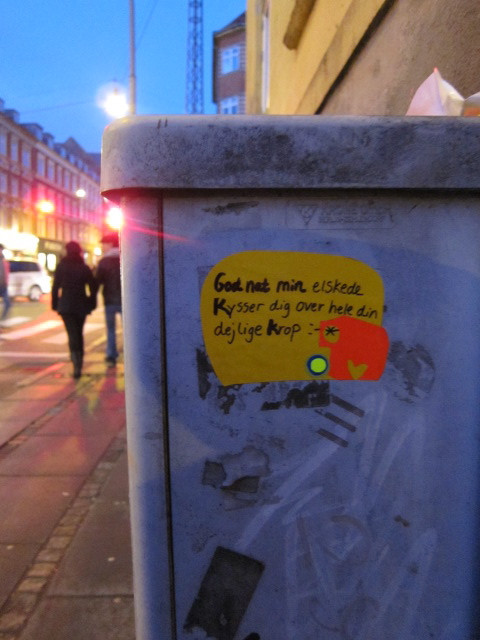 God nat min elskede
Kysser dig over hele din
dejlige krop :-*